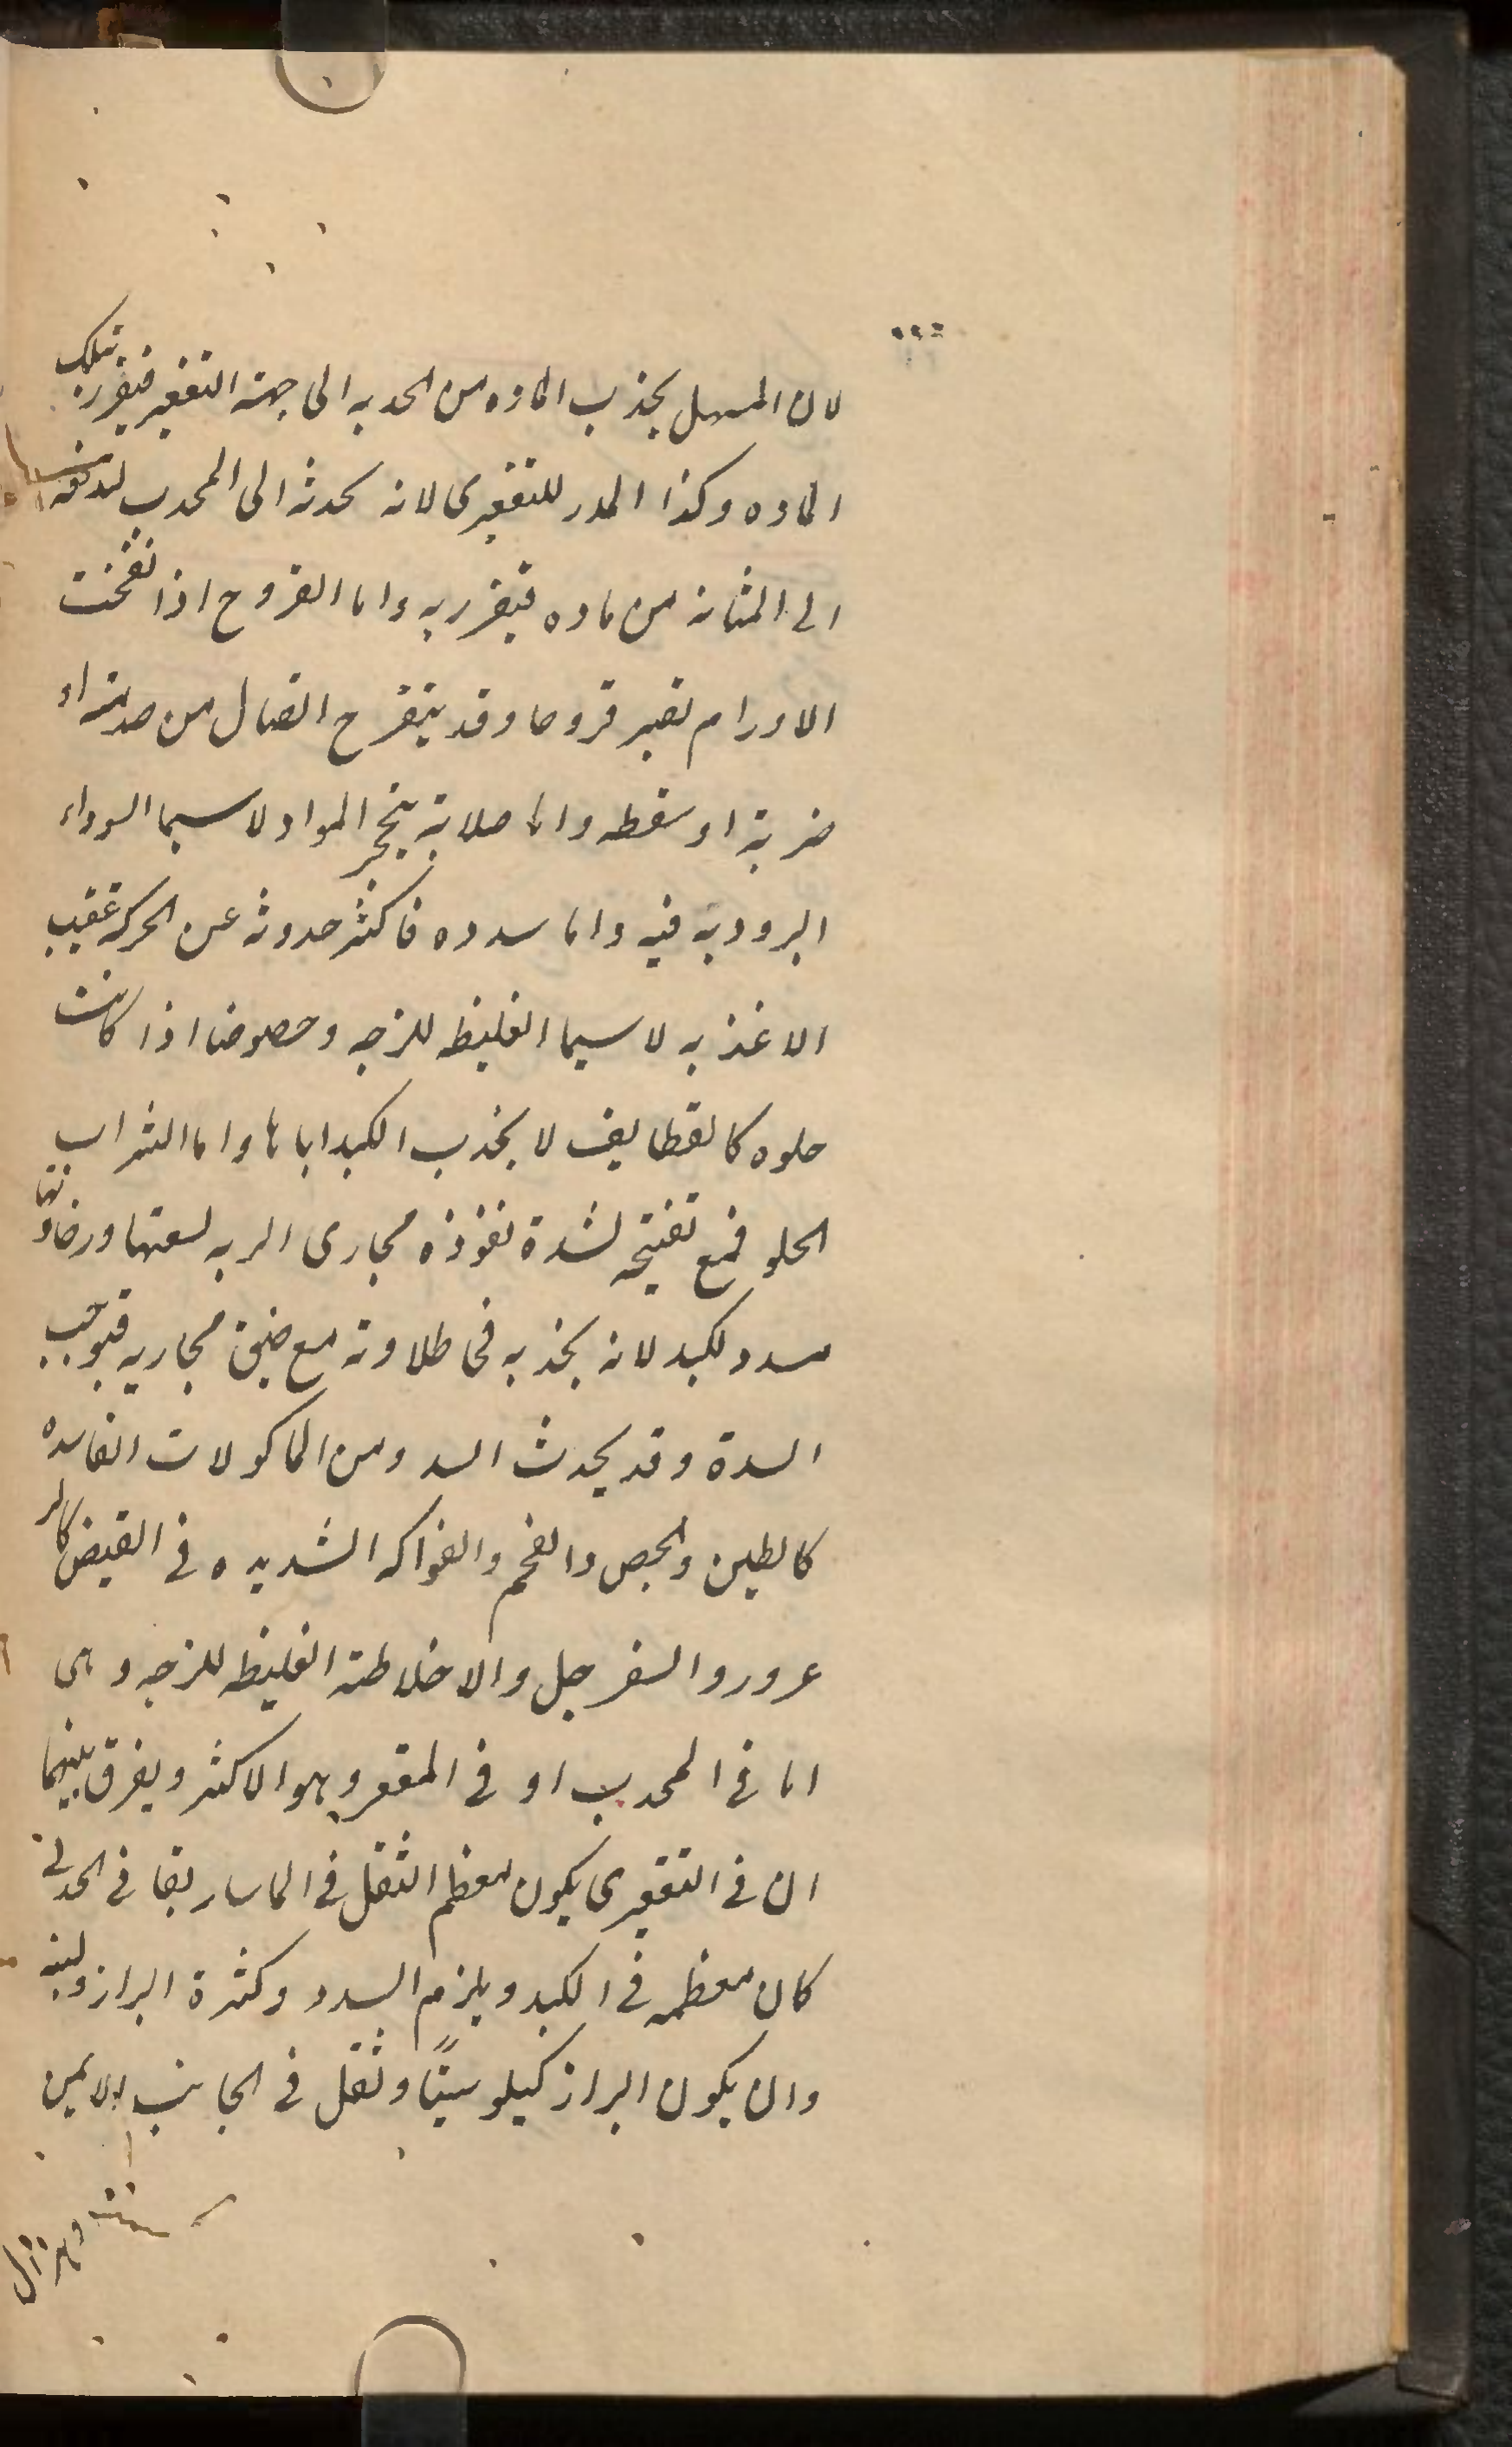 لان المسهل يجذب الماده من الحدبه الى جهة التقعير فيقرر تلك
الماده وكذا المدر للتقعيرى لانه يحدثه الى المحدب
الى المثانه من ماده فيقرر به واما القروح اذا نفخت
الاورام تصير قروحا وقد يتقرح اتصال من صدمة او
ضربة او سقطه واما صلابة بتحجر المواد لا سيما السوداء
البروديه فيه واما سدده فاكثر حدوثه عن الحركه عقيب
الاغذيه لا سيما الغليظه للزجه وخصوصا اذا كانت
حلوه كالقطايف لا يجذب الكبد اياها واما الشراب
الحلو فمع تفتيحه لشدة نفوذه مجارى الريه لسعتها ورخاوتها
سدد لكبد لانه يجذبه فى طلاوته مع ضيق مجاريه فيوجب
السدة وقد يحدث السدد من الماكولات الفاسده
كالطين والجص والفحم والفواكه الشديده فى القبض كالز
عرور والسفرجل والاخلاطه الغليظه للزجه وهى
اما فى المحدب او فى المقعر وهو الاكثر ويفرق بينهما
ان فى التقعيرى يكون معظم الثقل فى الماساريقا فى الحدبى
كان معظمه فى الكبد ويلزم السدد وكثرة البراز ولينه
وان يكون البراز كيلوسيًا وثقل فى الجانب الايمن
وهزال